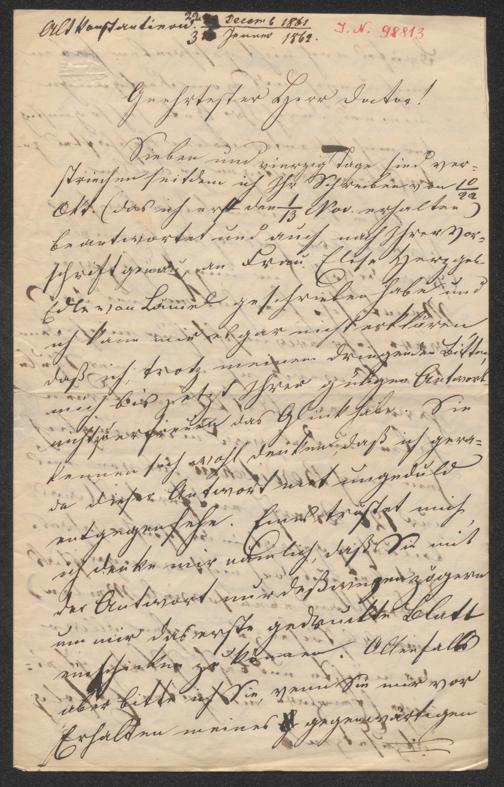 Alt Konstantinow. 22 Decemb 1861
3 Jänner 1862.
J. N. 98813
Geehrtester Herr Doctor!
Sieben und vierzig Tage sind ver-
strichen seitdem ich Ihr Schreiben von 10/22
Okt (das ich erst den 1/13 Nov. erhalten)
beantwortet und auch nach Ihrer Vor-
schrift genau, an Frau Elise Herz geb.
Edle von Lämel geschrieben habe und
ich kann mir es gar nicht erklären
daß ich, trotz meinem dringenden Bitten
mich bis jetzt Ihrer gütigen Antwort
nicht zu erfreuen das Glück habe. Sie
können sich wohl denken daß ich gera-
de dieser Antwort mit Ungeduld
entgegensehe. Eines tröstet mich,
ich denke mir nämlich, daß Sie mit
der Antwort nur deßwegen zögern
um mir das erste gedruckte Blatt
einschicken zu können. Allenfalls
aber bitte ich Sie wenn Sie mir vor
Erhalten meines gegenwärtigen